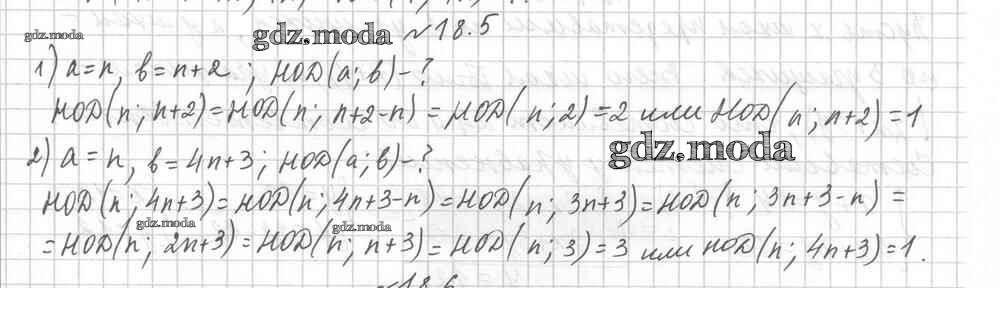 gdz.moda gdz.moda №18.5
1) a=n, b=n+2; НОД(a;b)-?
НОД(n; n+2)=НОД(n; n+2-n)=НОД(n;2)=2 или НОД(n; n+2)=1
2) a=n, b=4n+3; НОД(a;b)-? gdz.moda
НОД(n; 4n+3)=НОД(n; 4n+3-n)=НОД(n; 3n+3)=НОД(n; 3n+3-n)=
gdz.moda gdz.moda
=НОД(n; 2n+3)=НОД(n; n+3)=НОД(n; 3)=3 или НОД(n; 4n+3)=1.